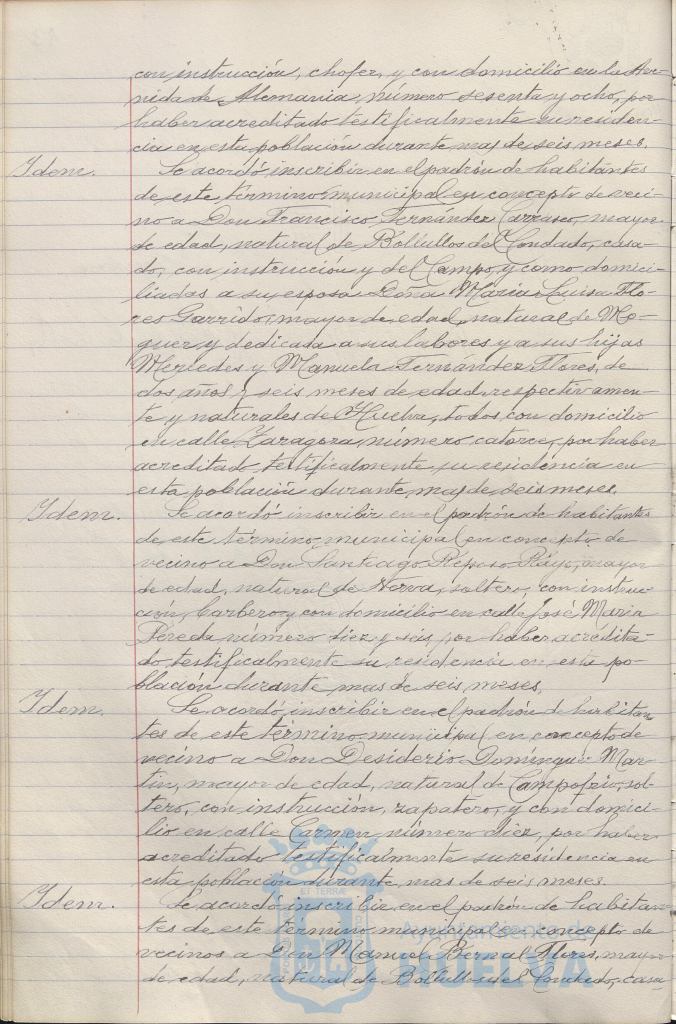 con instrucción, chofer, y con domicilio en la Ave-
nida de Alemania, número sesenta y ocho, por
haber acreditado testificalmente su residen-
cia en esta población durante mas de seis meses.
Idem. Se acordó inscribir en el padrón de habitantes
de este término municipal en concepto de veci-
no a Don Francisco Fernández Carrasco, mayor
de edad, natural de Bollullos del Condado, casa-
do, con instrucción y del Campo, y como domici-
liadas a su esposa Doña Maria Luisa Flo-
res Garrido, mayor de edad, natural de Mo-
guer y dedicada a sus labores y a sus hijas
Mercedes y Manuela Fernández Flores, de
dos años y seis meses de edad respectivamen-
te y naturales de Huelva, todos con domicilio
en calle Zaragoza, número catorce, por haber
acreditado testificalmente su residencia en
esta población durante mas de seis meses.
Idem. Se acordó inscribir en el padrón de habitantes
de este término municipal en concepto de
vecino a Don Santiago Reposo Rayo, mayor
de edad, natural de Nerva, soltero, con instruc-
ción, barbero y con domicilio en calle José Maria
Pereda número diez y seis, por haber acredita-
do testificalmente su residencia en esta po-
blación durante mas de seis meses.
Idem. Se acordó inscribir en el padrón de habitan-
tes de este término municipal en concepto de
vecino a Don Desiderio Domínguez Mar-
tin, mayor de edad, natural de Campofrio, sol-
tero, con instrucción, zapatero, y con domici-
lio en calle Carmen número diez, por haber
acreditado testificalmente su residencia en
esta población durante mas de seis meses.
Idem. Se acordó inscribir en el padrón de habitan-
tes de este término municipal en concepto de
vecinos a Don Manuel Bernal Flores, mayor
de edad, natural de Bollullos del Condado, casa
Ayuntamiento de
HUELVA